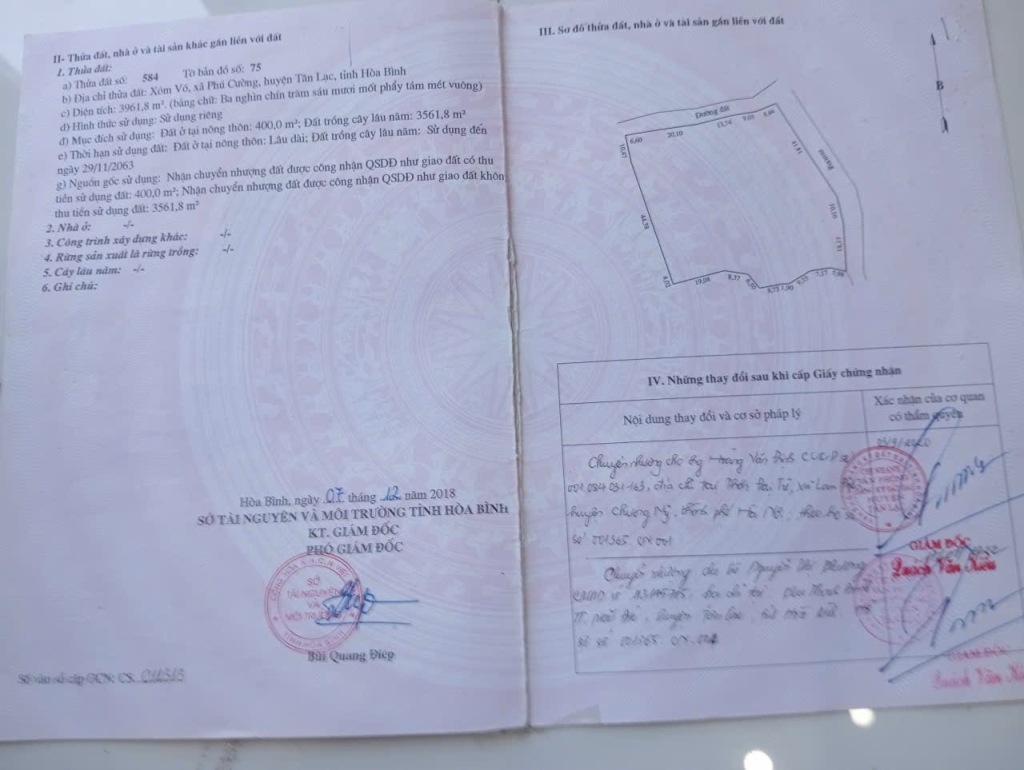 II- Thửa đất, nhà ở và tài sản khác gắn liền với đất
1. Thửa đất:
a) Thửa đất số: 584 Tờ bản đồ số: 75
b) Địa chỉ thửa đất: Xóm Vó, xã Phú Cường, huyện Tân Lạc, tỉnh Hòa Bình
c) Diện tích: 3961,8 m². (bằng chữ: Ba nghìn chín trăm sáu mươi mốt phẩy tám mét vuông)
d) Hình thức sử dụng: Sử dụng riêng
đ) Mục đích sử dụng: Đất ở tại nông thôn: 400,0 m²; Đất trồng cây lâu năm: 3561,8 m²
e) Thời hạn sử dụng đất: Đất ở tại nông thôn: Lâu dài; Đất trồng cây lâu năm: Sử dụng đến
ngày 29/11/2063
g) Nguồn gốc sử dụng: Nhận chuyển nhượng đất được công nhận QSDĐ như giao đất có thu
tiền sử dụng đất: 400,0 m²; Nhận chuyển nhượng đất được công nhận QSDĐ như giao đất không
thu tiền sử dụng đất: 3561,8 m²
2. Nhà ở: -/-
3. Công trình xây dựng khác: -/-
4. Rừng sản xuất là rừng trồng: -/-
5. Cây lâu năm: -/-
6. Ghi chú:
Hòa Bình, ngày 07 tháng 12 năm 2018
SỞ TÀI NGUYÊN VÀ MÔI TRƯỜNG TỈNH HÒA BÌNH
KT. GIÁM ĐỐC
PHÓ GIÁM ĐỐC
SỞ
TÀI NGUYÊN
VÀ
MÔI TRƯỜNG
TỈNH HÒA BÌNH
Bùi Quang Điệp
Số vào sổ cấp GCN: CS
III. Sơ đồ thửa đất, nhà ở và tài sản gắn liền với đất
B
Đường đất
6,60 20,10 13,74
10,67
44,78
4,02
19,04 8,37
10,10
IV. Những thay đổi sau khi cấp Giấy chứng nhận
Nội dung thay đổi và cơ sở pháp lý
Xác nhận của cơ quan
có thẩm quyền
Chuyển nhượng cho ông Hoàng Văn
địa chỉ tại Thôn
huyện Chương Mỹ, thành phố Hà Nội; theo hồ sơ
số 001365.CN.001
GIÁM ĐỐC
Quách Văn
Chuyển nhượng cho bà Nguyễn Thị Phương
địa chỉ tại
huyện
số 001365.CN.002
GIÁM ĐỐC
Quách Văn